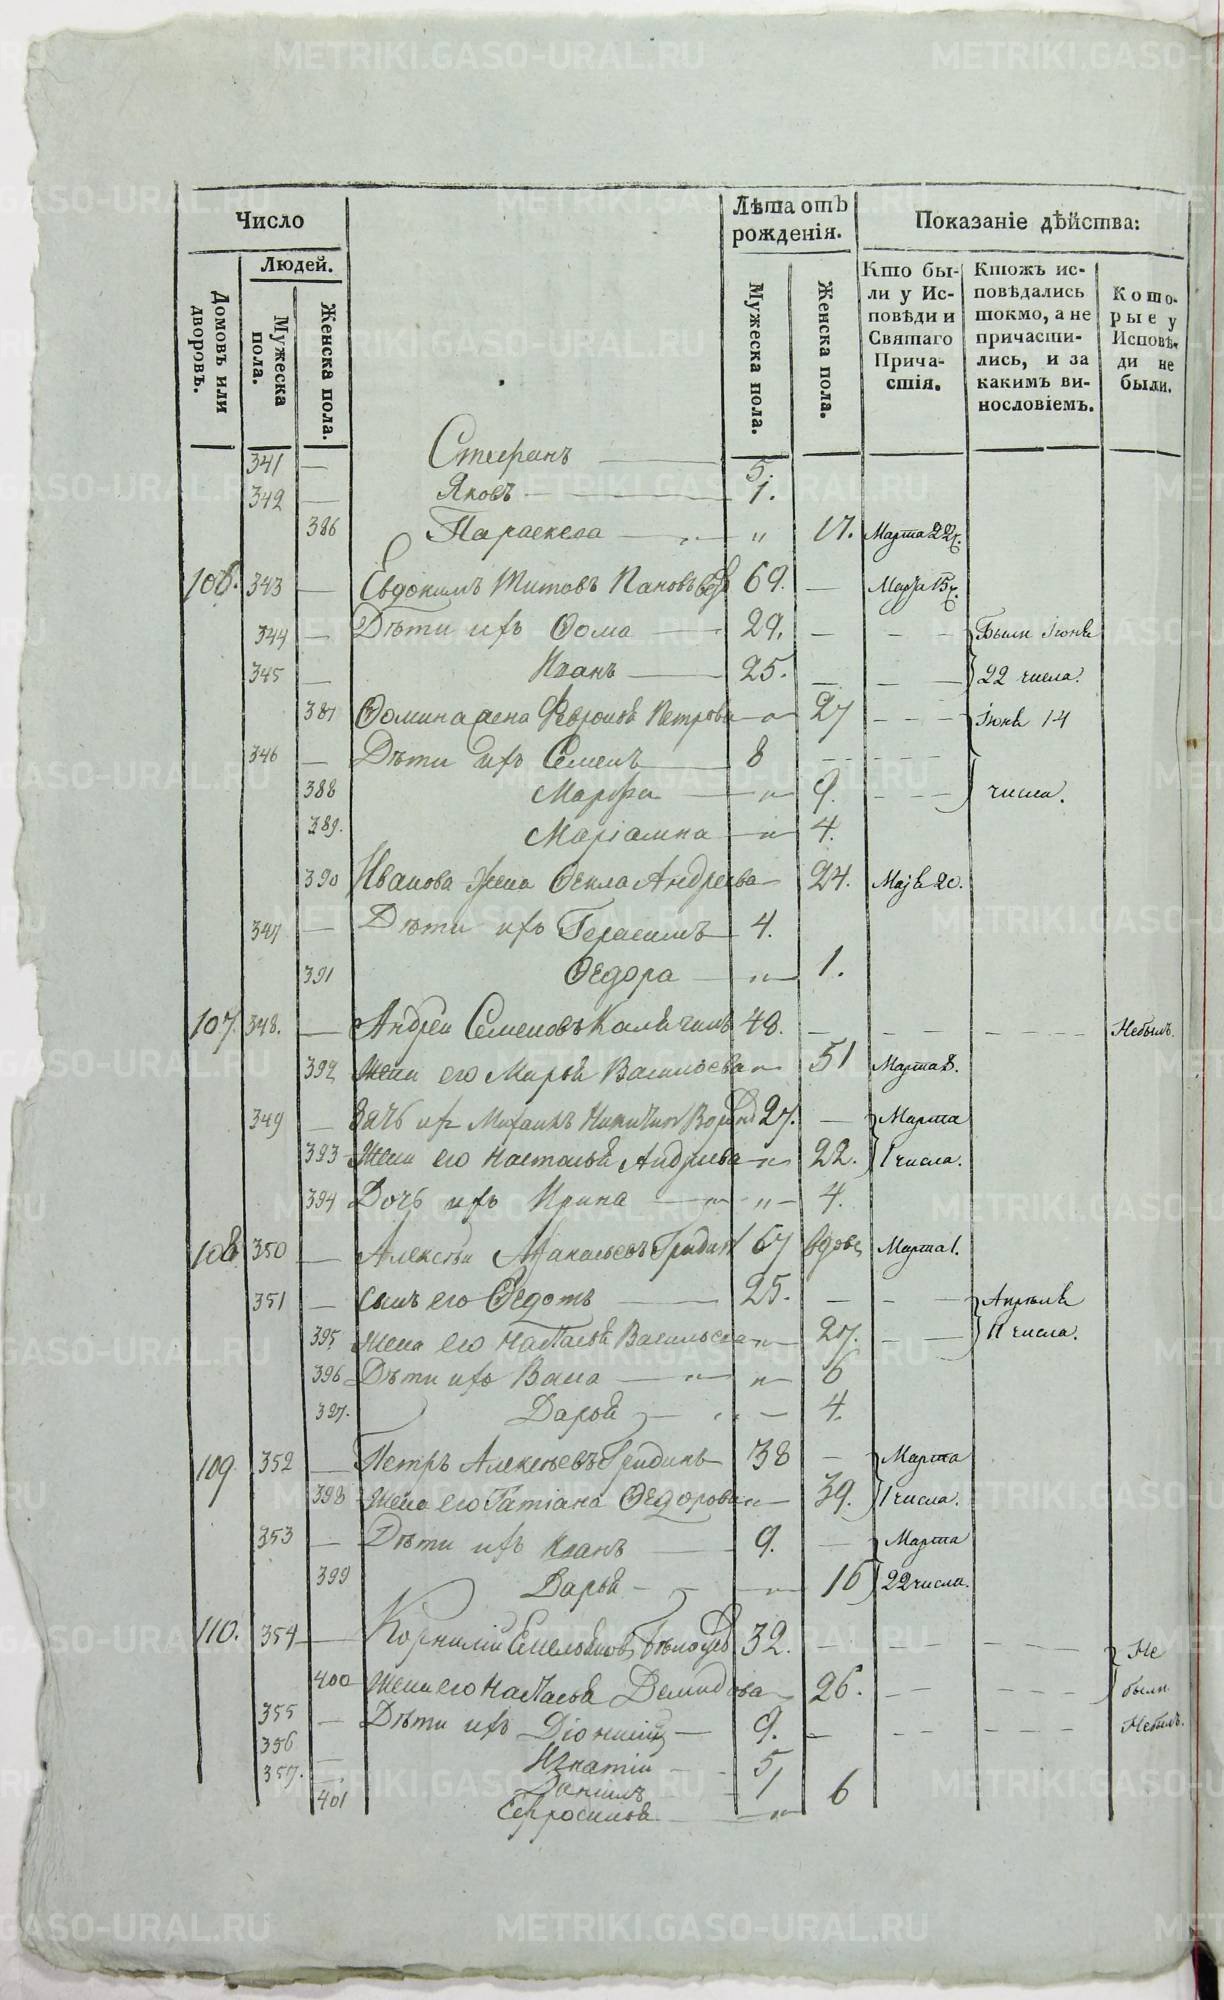 Число
Людей.
Домовъ или дворовъ.
Мужеска пола.
Женска пола.
Лѣта отъ рожденія.
Мужеска пола.
Женска пола.
Показаніе дѣйства:
Кто бы-
ли у Ис-
повѣди и
Святаго
Прича-
стія.
Ктожъ ис-
повѣдались
токмо, а не
причасти-
лись, и за
какимъ ви-
нословіемъ.
Кото-
рые у
Исповѣ-
ди не
были.
341 — Стефанъ — 5.
342 — Яковъ — 1.
386 Параскева — „ 17. Марта 22
106. 343 — Евдокимъ Титовъ Пановъ 69. — Марта 15
344 — Дѣти ихъ Ѳома — 29. — — — Были Іюня
345 — Иванъ — 25. — — — 22 числа.
387 Ѳомина жена Февронія Петрова — „ — 27 — — — Іюня 14
346 — Дѣти ихъ Семенъ — 8 — — — —
388 Марфа — „ — 9. — — — числа.
389. Маріамна — „ — 4.
390 Иванова жена Ѳекла Андреева — 24. Маія 20.
347 — Дѣти ихъ Герасимъ — 4.
391 Ѳедора — „ — 1.
107. 348. — Андрей Семеновъ Калячинъ 48. — — — — — — Небылъ.
392 Жена его Марья Васильева „ 51 Марта 8.
349 — Зять ихъ Михаилъ Никитинъ 27. — Марта
393 Жена его Настасья Андреева „ 22. 1 числа.
394 Дочь ихъ Ирина — „ — 4.
108 350 — Алексѣй Аѳанасьевъ Гридинъ 67 вдовъ Марта 1.
351 — Сынъ его Ѳедотъ — 25. — — — Апрѣля
395. Жена его Настасья Васильева „ 27. — — 11 числа.
396 Дѣти ихъ Васса — „ — „ — 6
397. Дарья — „ — 4.
109 352 — Петръ Алексѣевъ Гридинъ — 38 — Марта
398 Жена его Татіана Ѳедорова „ — 39. 1 числа.
353 — Дѣти ихъ Иванъ — 9. — Марта
399 Дарья — „ — 16 22 числа.
110. 354 — Корнилій Емельяновъ 32. — — — — — — Не
400 Жена его Настасья Демидова — 26. — — — — — были
355 — Дѣти ихъ Діонисій — 9. — — — — — — Небылъ.
356 — Игнатій — 5
357. — Данилъ — 1
401 Евфросинья — „ — 6
METRIKI.GASO-URAL.RU